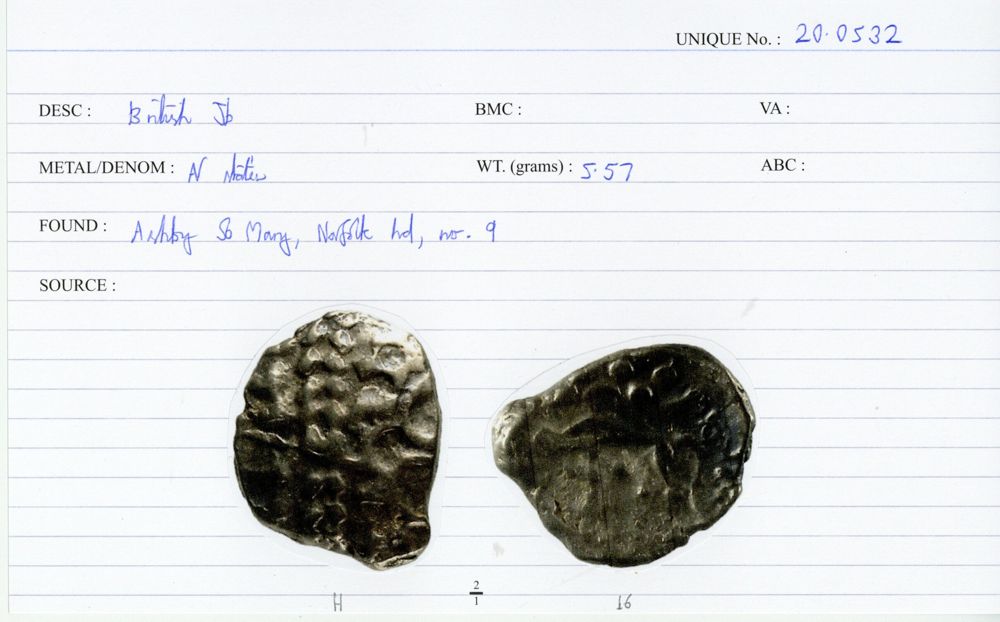 UNIQUE No. : 20.0532
DESC : British Jb BMC : VA :
METAL/DENOM : N stater WT. (grams) : 5.57 ABC :
FOUND : Ashby St Mary, Norfolk hd, no. 9
SOURCE :
H 2/1 16